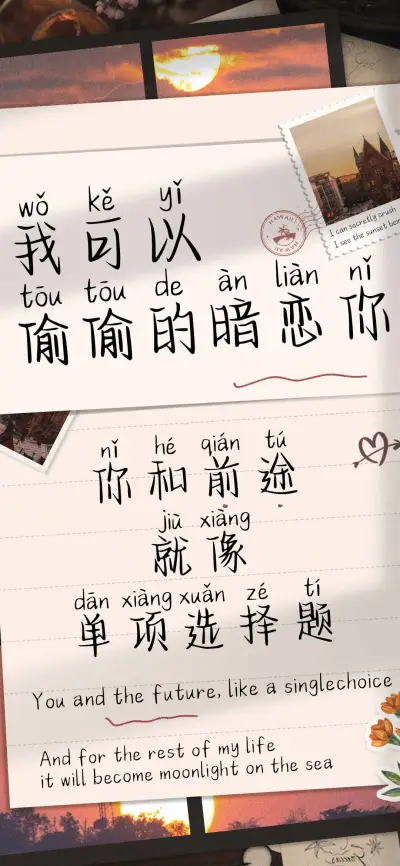 wǒ kě yǐ
我可以
HAWAII
HAWAII
I can secretly crush
I see the sunset
tōu tōu de àn liàn nǐ
偷偷的暗恋你
nǐ hé qián tú
你和前途
jiù xiàng
就像
dān xiàng xuǎn zé tí
单项选择题
You and the future, like a singlechoice
And for the rest of my life
it will become moonlight on the sea